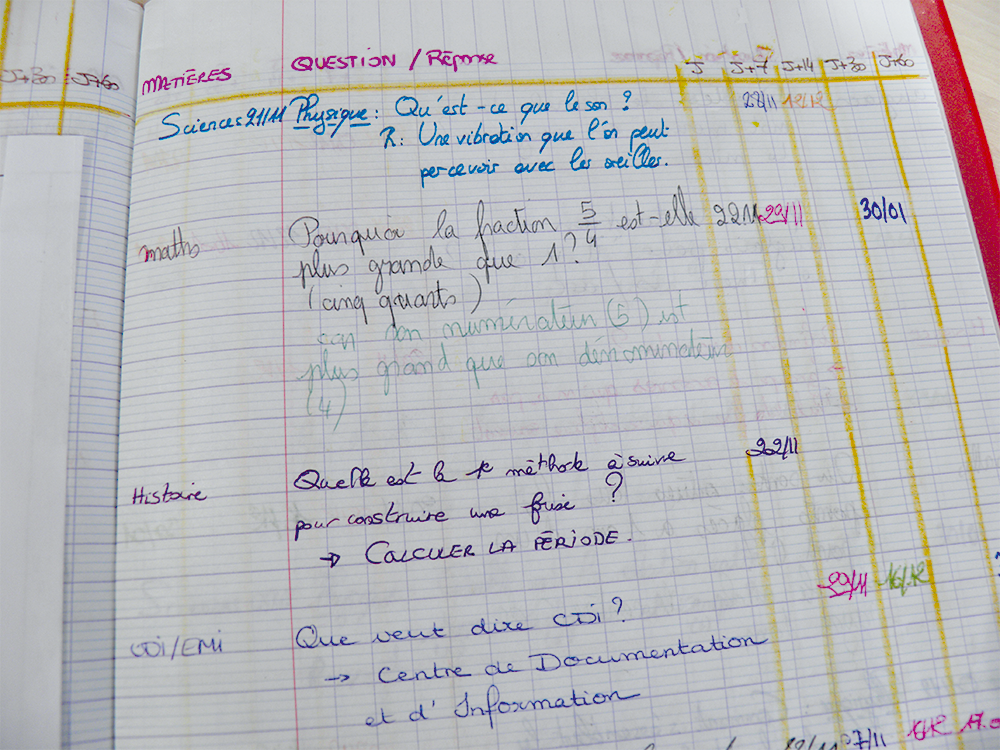 J+30 J+60
MATIÈRES QUESTION / Réponse J J+7 J+14 J+30 J+60
Sciences 21/11 Physique : Qu'est-ce que le son ?
R: Une vibration que l'on peut
percevoir avec les oreilles.
maths Pourquoi la fraction 5/4 est-elle 22.11 29/11 30/01
plus grande que 1 ?
(cinq quarts)
car son numérateur (5) est
plus grand que son dénominateur
(4)
Histoire Quelle est la méthode à suivre 22/11
pour construire une frise ?
→ CALCULER LA PÉRIODE.
29/11 16/12
CDI/EMI Que veut dire CDI ?
→ Centre de Documentation
et d'Information